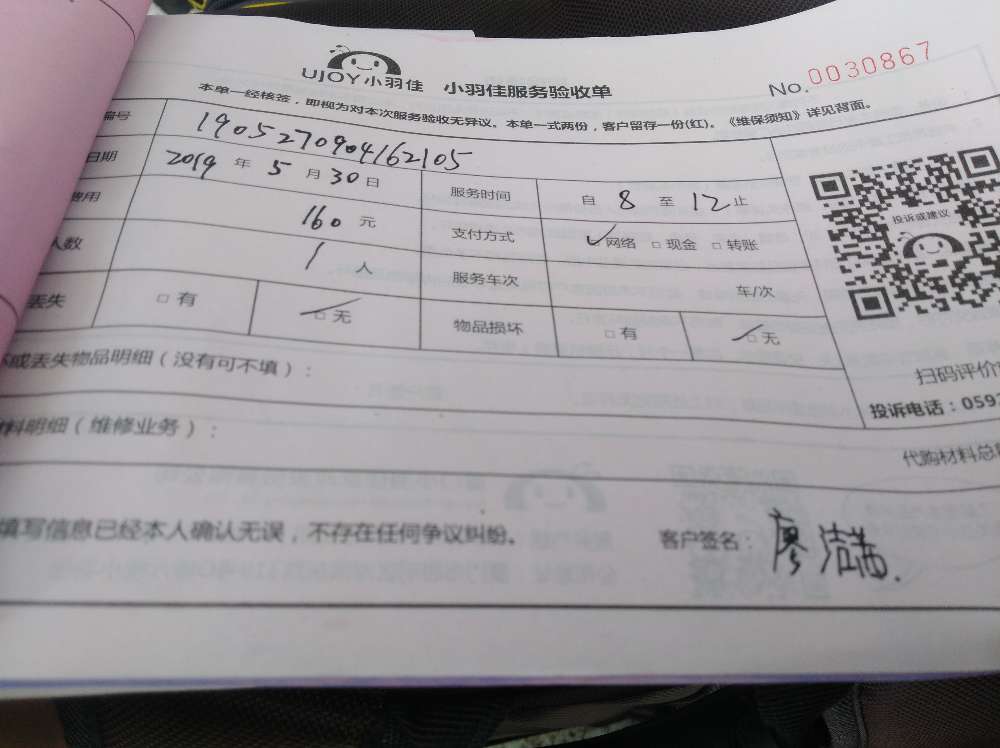 UJOY小羽佳 小羽佳服务验收单
No.0030867
本单一经核签，即视为对本次服务验收无异议。本单一式两份，客户留存一份(红)。《维保须知》详见背面。
编号 1905270904162105
日期 2019 年 5 月 30 日 服务时间 自 8 至 12 止
费用 160 元 支付方式 ☑网络 □现金 □转账
人数 1 人 服务车次 车/次
丢失 □有 ☑无 物品损坏 □有 ☑无
投诉或建议
扫码评价
或丢失物品明细（没有可不填）：
投诉电话：059
料明细（维修业务）：
代购材料总
填写信息已经本人确认无误，不存在任何争议纠纷。 客户签名：廖洁